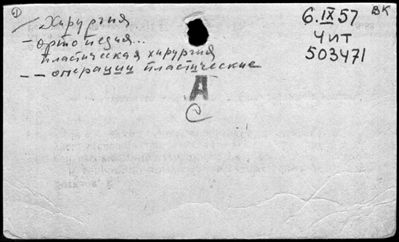 ① – Хирургия
– ортопедия...
пластическая хирургия
– – операции пластические
А
С
6.IX 57 ВК
Чит
503471